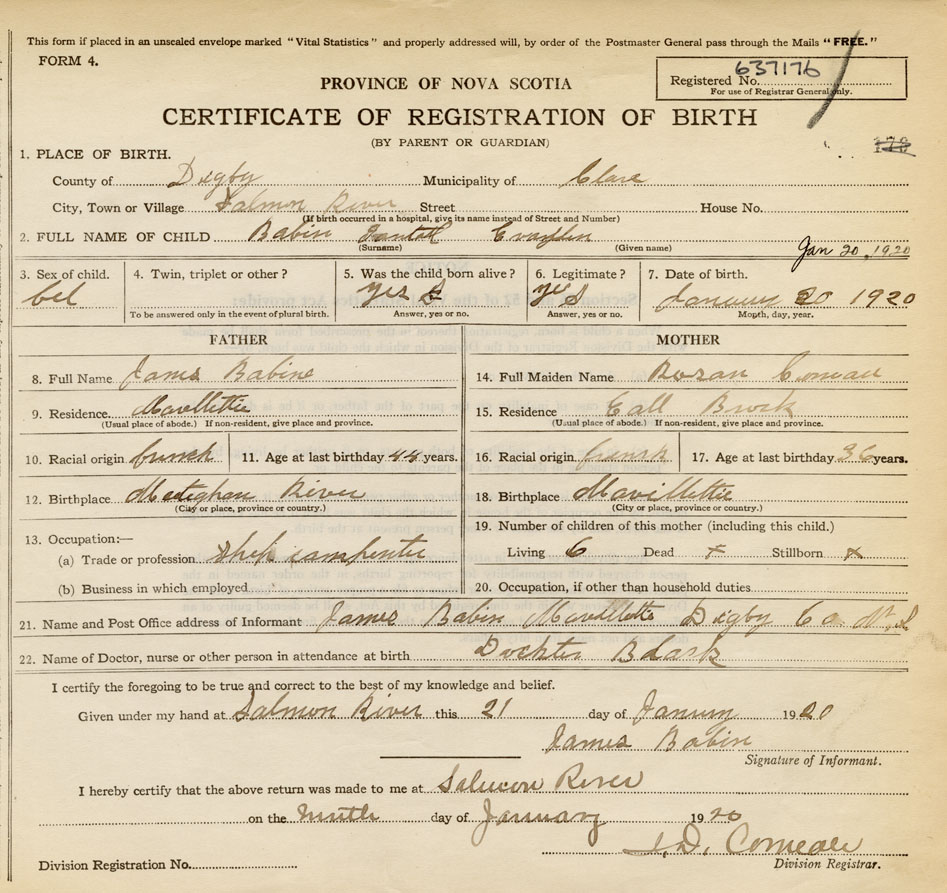 This form if placed in an unsealed envelope marked "Vital Statistics" and properly addressed will, by order of the Postmaster General pass through the Mails "FREE."
FORM 4.
637176
Registered No.
For use of Registrar General only.
PROVINCE OF NOVA SCOTIA
CERTIFICATE OF REGISTRATION OF BIRTH
(BY PARENT OR GUARDIAN)
178
1. PLACE OF BIRTH.
County of Digby Municipality of Clare
City, Town or Village Salmon River Street House No.
(If birth occurred in a hospital, give its name instead of Street and Number)
2. FULL NAME OF CHILD Babin
(Surname) (Given name)
Jan 20, 1920
3. Sex of child. 4. Twin, triplet or other? 5. Was the child born alive? 6. Legitimate? 7. Date of birth.
yes yes January 20 1920
To be answered only in the event of plural birth. Answer, yes or no. Answer, yes or no. Month, day, year.
FATHER MOTHER
8. Full Name James Babine 14. Full Maiden Name Rosan Comeau
9. Residence Mavillettie 15. Residence Call Brook
(Usual place of abode.) If non-resident, give place and province. (Usual place of abode.) If non-resident, give place and province.
10. Racial origin french 11. Age at last birthday 44 years. 16. Racial origin french 17. Age at last birthday 36 years.
12. Birthplace Meteghan River 18. Birthplace Mavillettie
(City or place, province or country.) (City or place, province or country.)
13. Occupation:— 19. Number of children of this mother (including this child.)
(a) Trade or profession Ship carpenter Living 6 Dead x Stillborn x
(b) Business in which employed 20. Occupation, if other than household duties
21. Name and Post Office address of Informant James Babin Mavillette Digby Co. N.S
22. Name of Doctor, nurse or other person in attendance at birth Dockter Black
I certify the foregoing to be true and correct to the best of my knowledge and belief.
Given under my hand at Salmon River this 21 day of January 1920
James Babin
Signature of Informant.
I hereby certify that the above return was made to me at Salmon River
on the day of January 1920
J. D. Comeau
Division Registration No. Division Registrar.